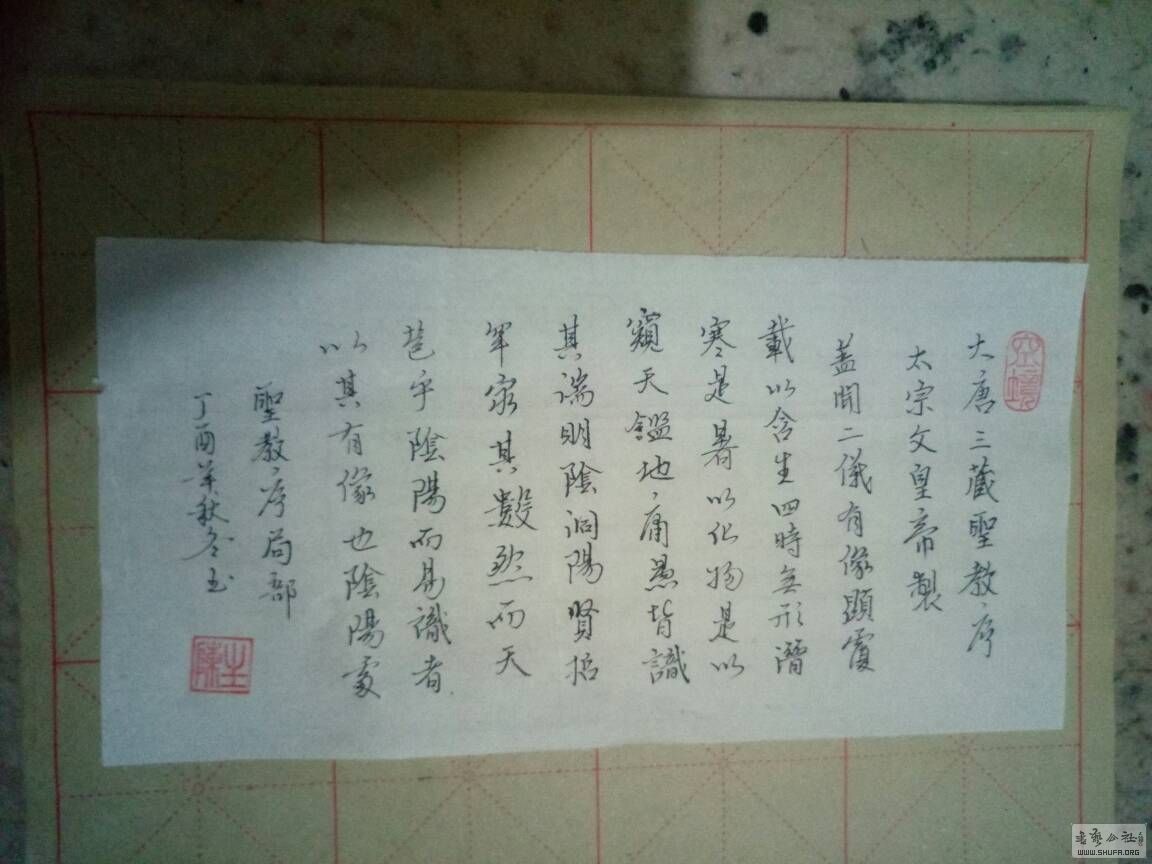 大唐三藏聖教序
太宗文皇帝製
蓋聞二儀有像顯覆
載以含生四時無形潛
寒是暑以化物是以
窺天鑑地庸愚皆識
其端明陰洞陽賢哲
罕窮其數然而天
苞乎陰陽而易識者
以其有像也陰陽處
聖教序局部
丁酉年秋冬玉
書藝公社
WWW.SHUFA.ORG